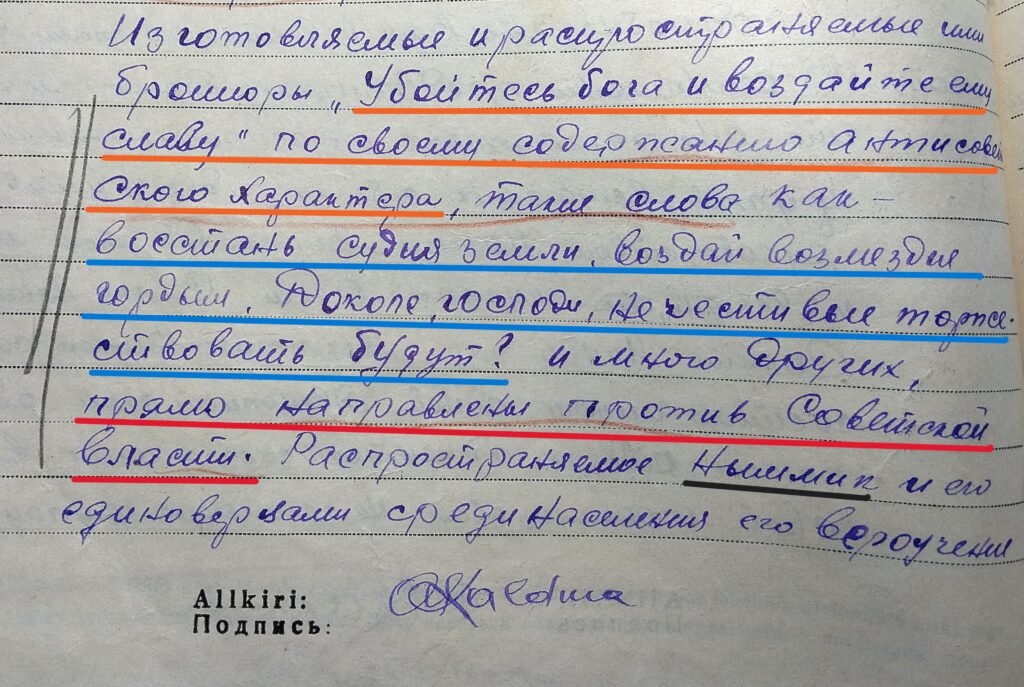 Изготовляемые и распространяемые ими
брошюры „Убойтесь бога и воздайте ему
славу" по своему содержанию антисовет
ского характера, такие слова как –
восстань судия земли, воздай возмездие
гордым. Доколе, господи, нечестивые торже-
ствовать будут? и много других,
прямо направлены против Советской
власти. Распространяемое Ныммик и его
единоверцами среди населения его вероучение
Allkiri:
Подпись: